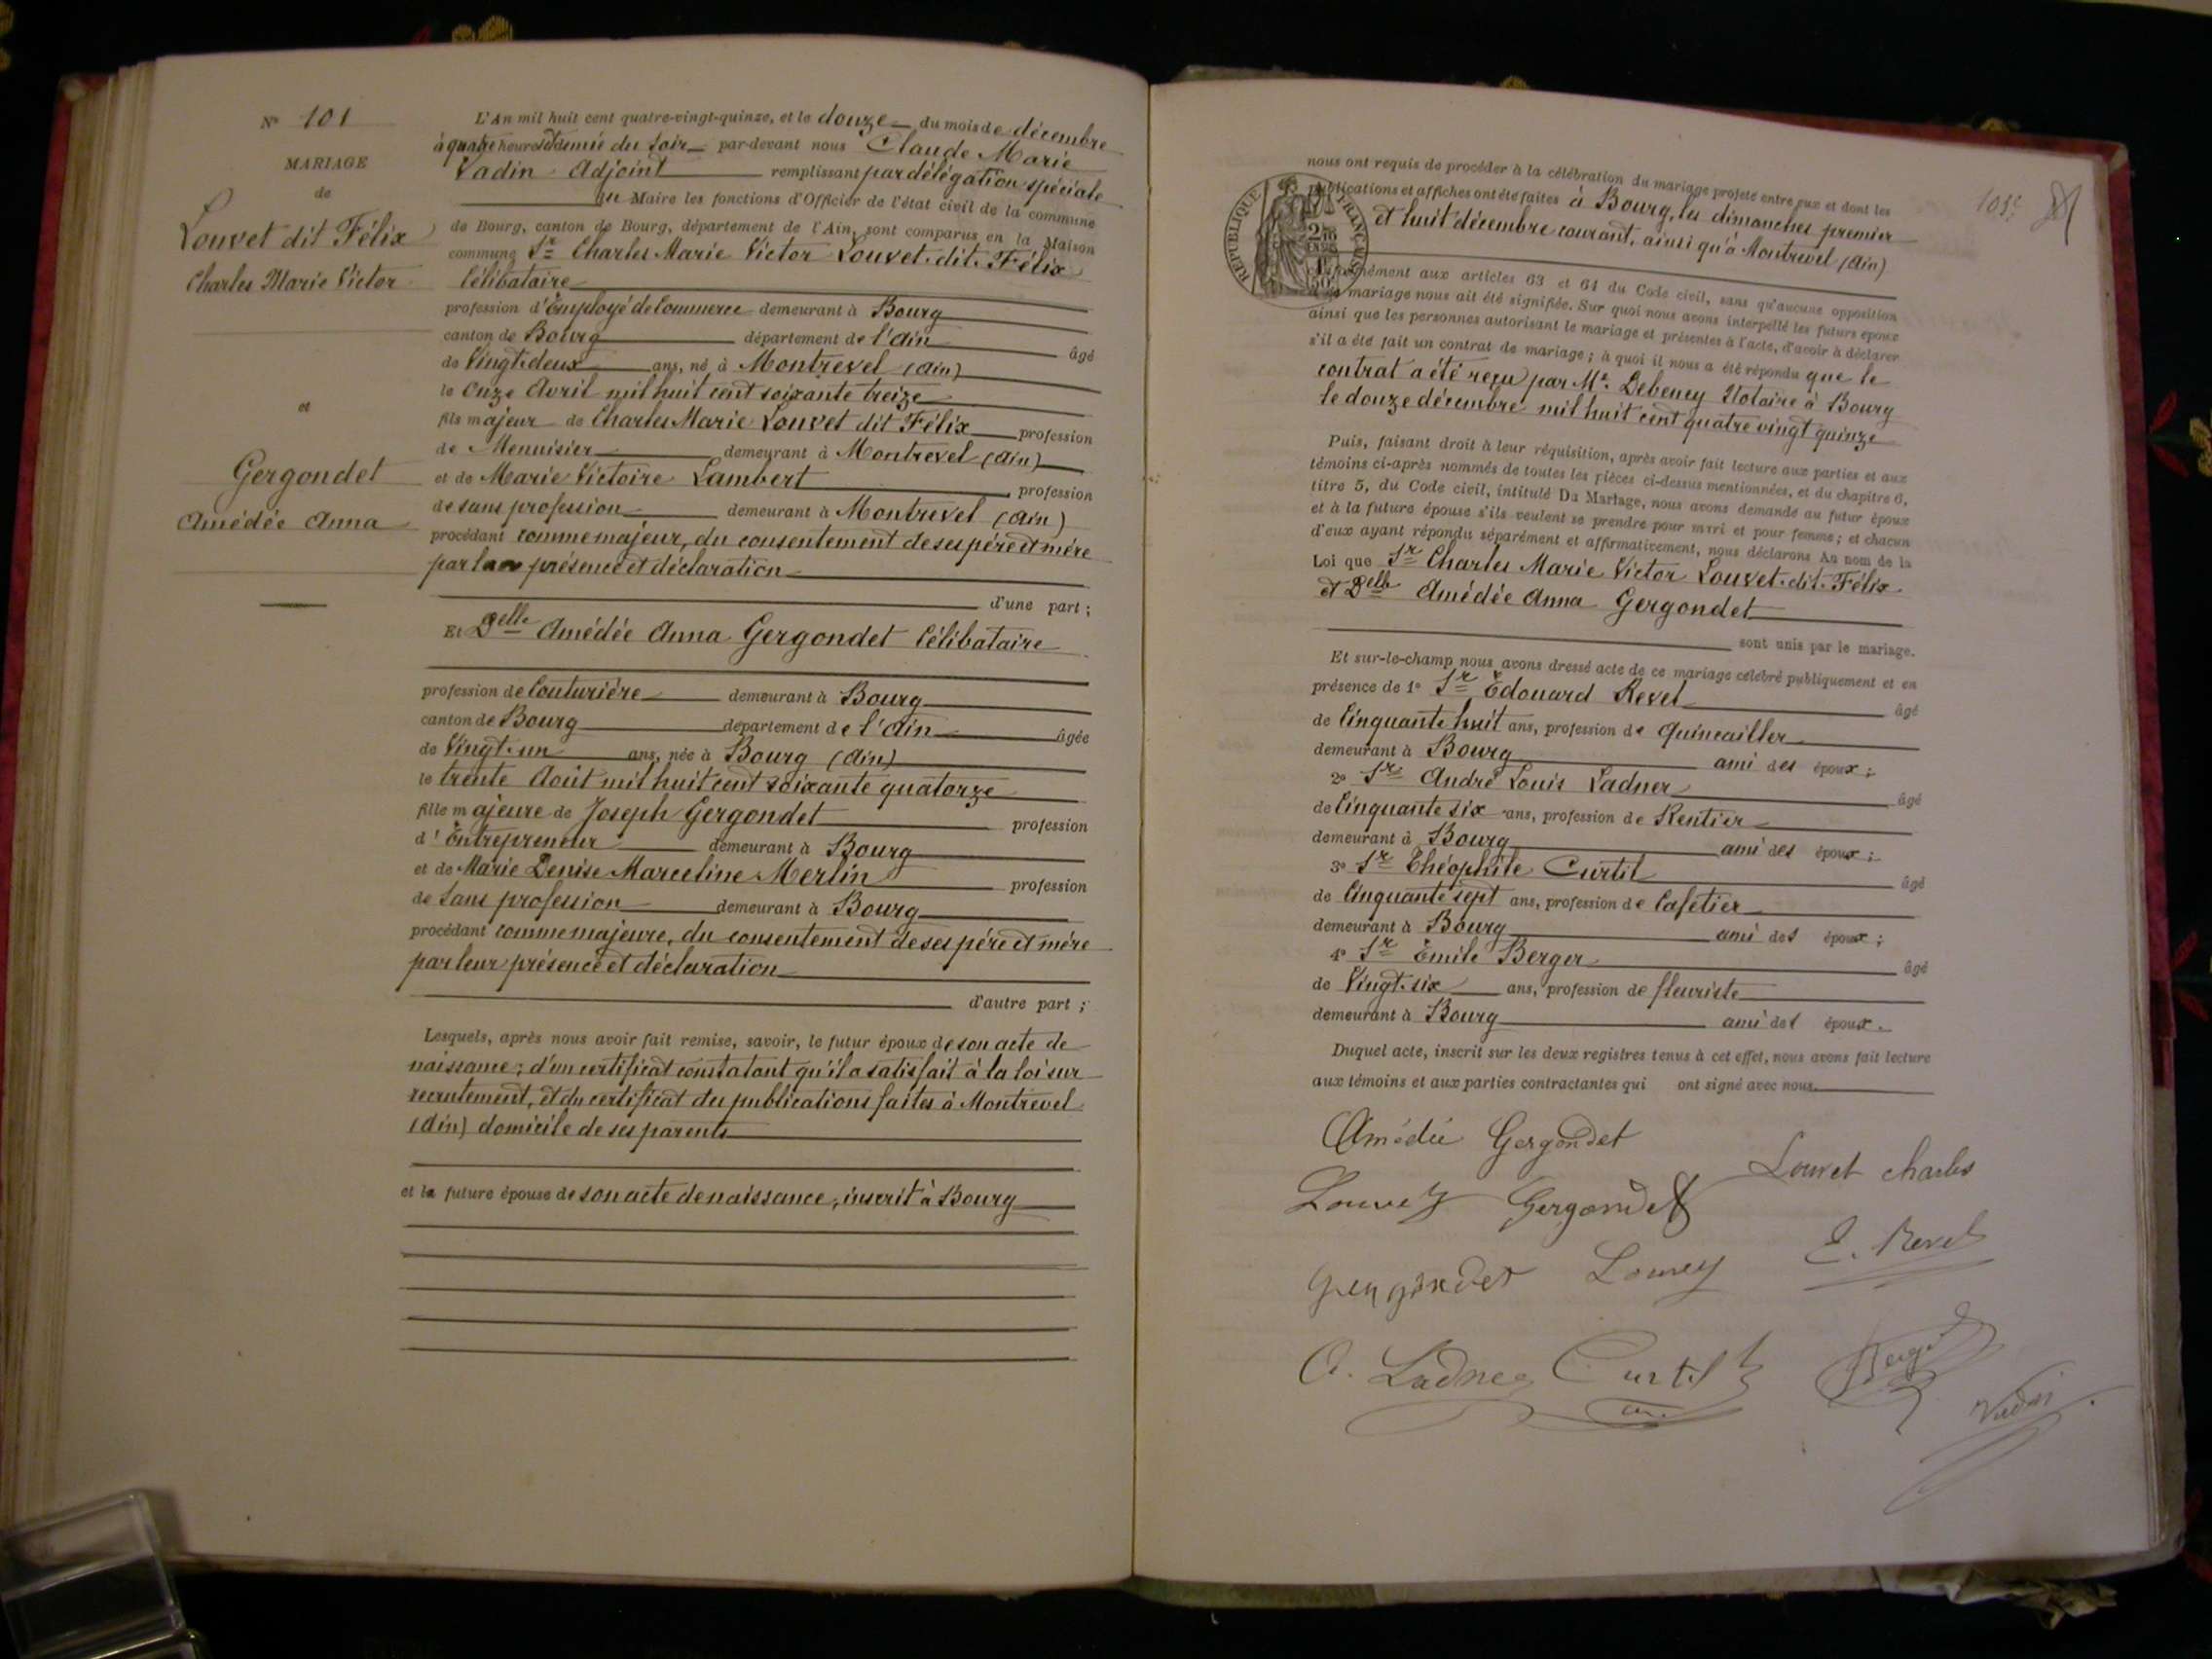 N° 101
MARIAGE
de
Louvet dit Félix
Charles Marie Victor
et
Gergondet
Amédée Anna
L'An mil huit cent quatre-vingt-quinze, et le douze du mois de décembre
à quatre heures et demie du soir par-devant nous Claude Marie
Vadin Adjoint remplissant par délégation spéciale
du Maire les fonctions d'Officier de l'état civil de la commune
de Bourg, canton de Bourg, département de l'Ain, sont comparus en la Maison
commune Sr Charles Marie Victor Louvet dit Félix
Célibataire
profession d'Employé de Commerce demeurant à Bourg
canton de Bourg département de l'Ain âgé
de Vingt-deux ans, né à Montrevel (Ain)
le Onze Avril mil huit cent soixante treize
fils majeur de Charles Marie Louvet dit Félix profession
de Menuisier demeurant à Montrevel (Ain)
et de Marie Victoire Lambert profession
de sans profession demeurant à Montrevel (Ain)
procédant comme majeur, du consentement de ses père et mère
par leur présence et déclaration
d'une part ;
Et Delle Amédée Anna Gergondet Célibataire
profession de Couturière demeurant à Bourg
canton de Bourg département de l'Ain âgée
de Vingt-un ans, née à Bourg (Ain)
le trente Août mil huit cent soixante quatorze
fille majeure de Joseph Gergondet profession
d'Entrepreneur demeurant à Bourg
et de Marie Denise Marceline Merlin profession
de Sans profession demeurant à Bourg
procédant comme majeure, du consentement de ses père et mère
par leur présence et déclaration
d'autre part ;
Lesquels, après nous avoir fait remise, savoir, le futur époux de son acte de
naissance ; d'un certificat constatant qu'il a satisfait à la loi sur
recrutement, et du certificat des publications faites à Montrevel
(Ain) domicile de ses parents
et la future épouse de son acte de naissance, inscrit à Bourg
105e
nous ont requis de procéder à la célébration du mariage projeté entre eux et dont les
publications et affiches ont été faites à Bourg, les dimanches premier
et huit décembre courant, ainsi qu'à Montrevel (Ain)
RÉPUBLIQUE FRANÇAISE
conformément aux articles 63 et 64 du Code civil, sans qu'aucune opposition
à ce mariage nous ait été signifiée. Sur quoi nous avons interpellé les futurs époux
ainsi que les personnes autorisant le mariage et présentes à l'acte, d'avoir à déclarer
s'il a été fait un contrat de mariage ; à quoi il nous a été répondu que le
contrat a été reçu par Me Debeney Notaire à Bourg
le douze décembre mil huit cent quatre vingt quinze
Puis, faisant droit à leur réquisition, après avoir fait lecture aux parties et aux
témoins ci-après nommés de toutes les pièces ci-dessus mentionnées, et du chapitre 6,
titre 5, du Code civil, intitulé Du Mariage, nous avons demandé au futur époux
et à la future épouse s'ils veulent se prendre pour mari et pour femme ; et chacun
d'eux ayant répondu séparément et affirmativement, nous déclarons Au nom de la
Loi que Sr Charles Marie Victor Louvet dit Félix
et Delle Amédée Anna Gergondet
sont unis par le mariage.
Et sur-le-champ nous avons dressé acte de ce mariage célébré publiquement et en
présence de 1° Sr Edouard Revel âgé
de Cinquante huit ans, profession de Quincailler
demeurant à Bourg ami des époux ;
2° Sr André Louis Ladner âgé
de Cinquante six ans, profession de Rentier
demeurant à Bourg ami des époux ;
3° Sr Théophile Curtil âgé
de Cinquante sept ans, profession de Cafetier
demeurant à Bourg ami des époux ;
4° Sr Emile Berger âgé
de Vingt-six ans, profession de fleuriste
demeurant à Bourg ami des époux.
Duquel acte, inscrit sur les deux registres tenus à cet effet, nous avons fait lecture
aux témoins et aux parties contractantes qui ont signé avec nous.
Amédée Gergondet
Louvet charles
Louvet Gergondet
Gergondet Louvet E. Revel
A. Ladner Curtil Berger
Vadin